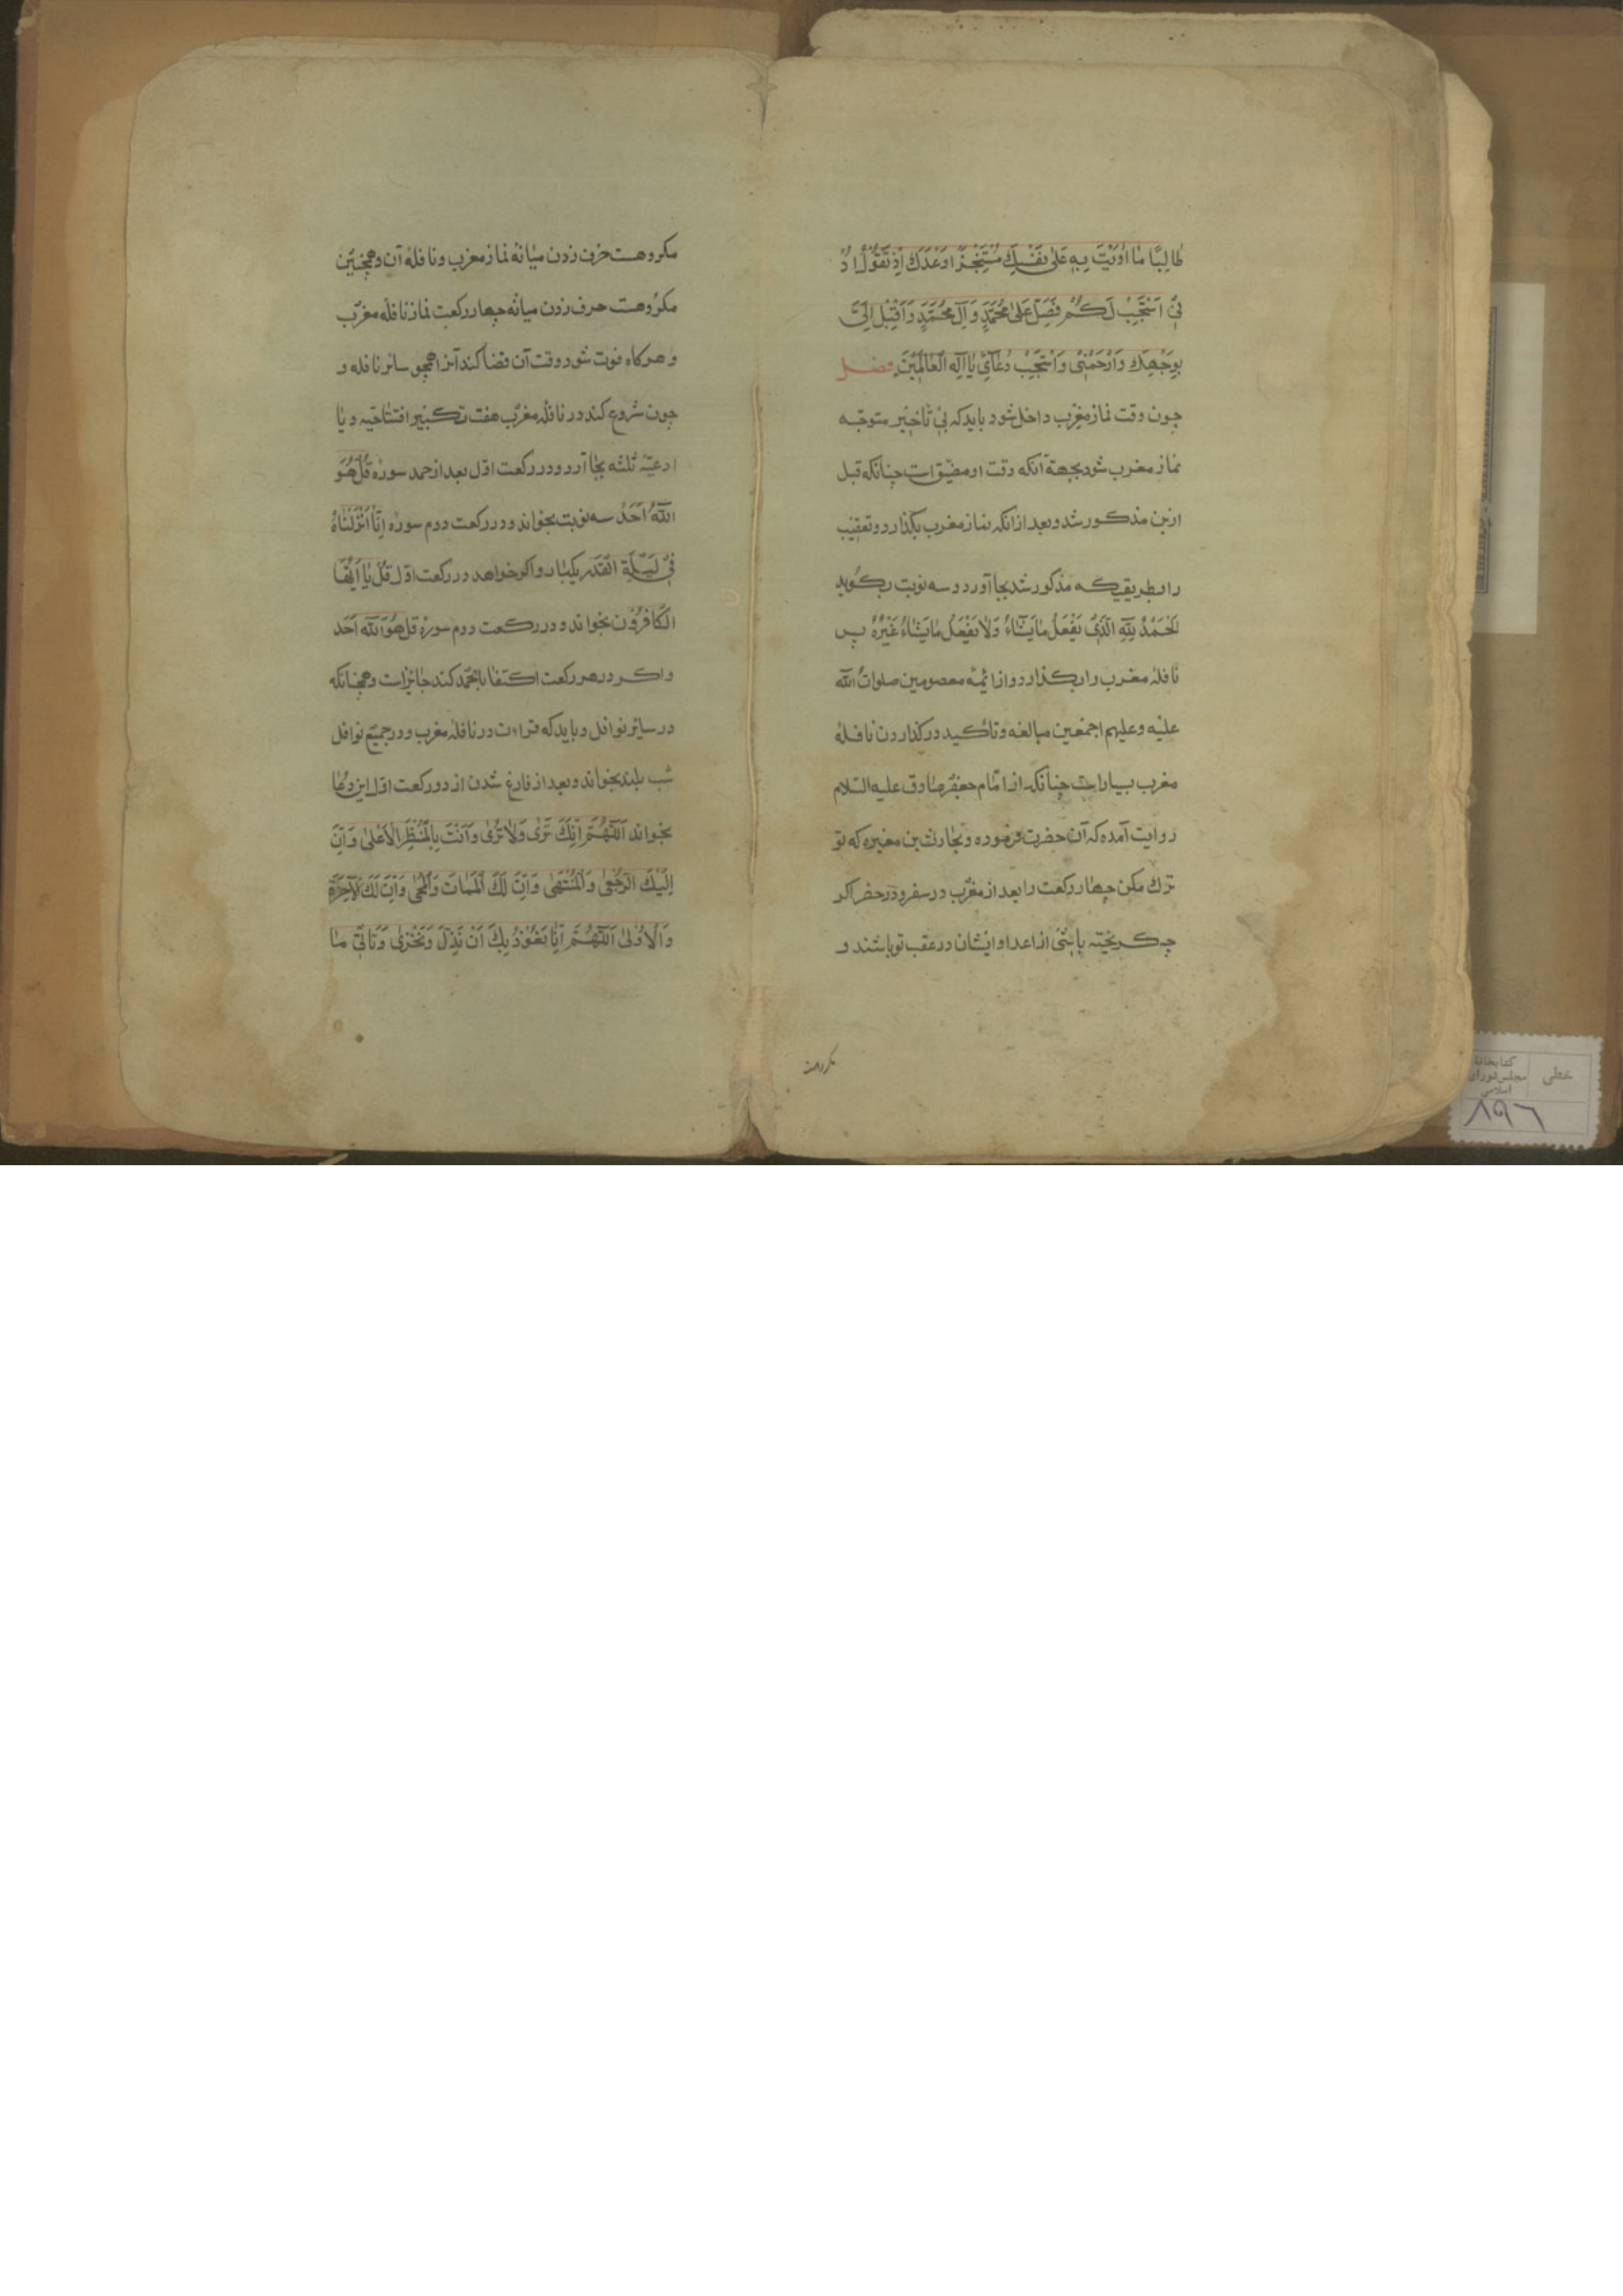 طالِبًا ما اوَیْتَ بِهِ عَلی نَفْسِكَ مُسْتَنْجِزًا وَعْدَكَ اِذْ تَقُولُ ادْعُو
نی اَسْتَجِبْ لَكُمْ فَصَلِّ عَلی مُحَمَّدٍ وَآلِ مُحَمَّدٍ وَاَقْبِلْ اِلَیَّ
بِوَجْهِكَ وَارْحَمْنی وَاسْتَجِبْ دُعائی یا اِلهَ الْعالَمینَ فصل
چون وقت نماز مغرب داخل شود باید که بی تاخیر متوجه
نماز مغرب شود بجهة آنکه وقت او مضیق است چنانکه قبل
ازین مذکور شد و بعد از آنکه نماز مغرب بگذارد و تعقیب
را بطریقیکه مذکور شد بجا آورد و سه نوبت بگوید
اَلْحَمْدُ لِلّهِ الَّذی یَفْعَلُ ما یَشاءُ وَلا یَفْعَلُ ما یَشاءُ غَیْرُهُ پس
نافله مغرب را بگذارد و از ائمه معصومین صلوات الله
علیه وعلیهم اجمعین مبالغه و تاکید در گذاردن نافله
مغرب بسیار است چنانکه از امام جعفر صادق علیه السلام
روایت آمده که آن حضرت فرموده بحارث بن مغیره که تو
ترك مکن چهار رکعت را بعد از مغرب در سفر و در حضر اگر
چه گریخته باشی از اعدا و ایشان در عقب تو باشند و
مکروهست
مکروهست حرف زدن میانه نماز مغرب و نافله آن و همچنین
مکروهست حرف زدن میانه چهار رکعت نماز نافله مغرب
و هرگاه فوت شود وقت آن قضا کند آنرا همچو سائر نافله و
چون شروع کند در نافله مغرب هفت تکبیر افتتاحیه و با
ادعیه ثلثه بجا آرد و در رکعت اول بعد از حمد سوره قُلْ هُوَ
اللّهُ اَحَدٌ سه نوبت بخواند و در رکعت دوم سوره اِنّا اَنْزَلْناهُ
فی لَیْلَةِ الْقَدْرِ یکبار و اگر خواهد در رکعت اول قُلْ یا اَیُّهَا
الْكافِرُونَ بخواند و در رکعت دوم سوره قُلْ هُوَ اللّهُ اَحَد
و اگر در هر رکعت اکتفا بالحمد کند جایز است و همچنانکه
در سایر نوافل و باید که قراءت در نافله مغرب و در جمیع نوافل
شب بلند بخواند و بعد از فارغ شدن از دو رکعت اول این دعا
بخواند اَللّهُمَّ اِنَّكَ تَرى وَلا تُرى وَاَنْتَ بِالْمَنْظَرِ الْاَعْلى وَاَنَّ
اِلَیْكَ الرُّجْعى وَالْمُنْتَهى وَاَنَّ لَكَ الْمَماتَ وَالْمَحْیا وَاَنَّ لَكَ الْآخِرَةَ
وَالْاُولى اَللّهُمَّ اِنّا نَعُوذُ بِكَ اَنْ نَذِلَّ وَنَخْزى وَنَأْتِیَ ما
خطی
کتابخانه
مجلس شورای
اسلامی
۸۹۶